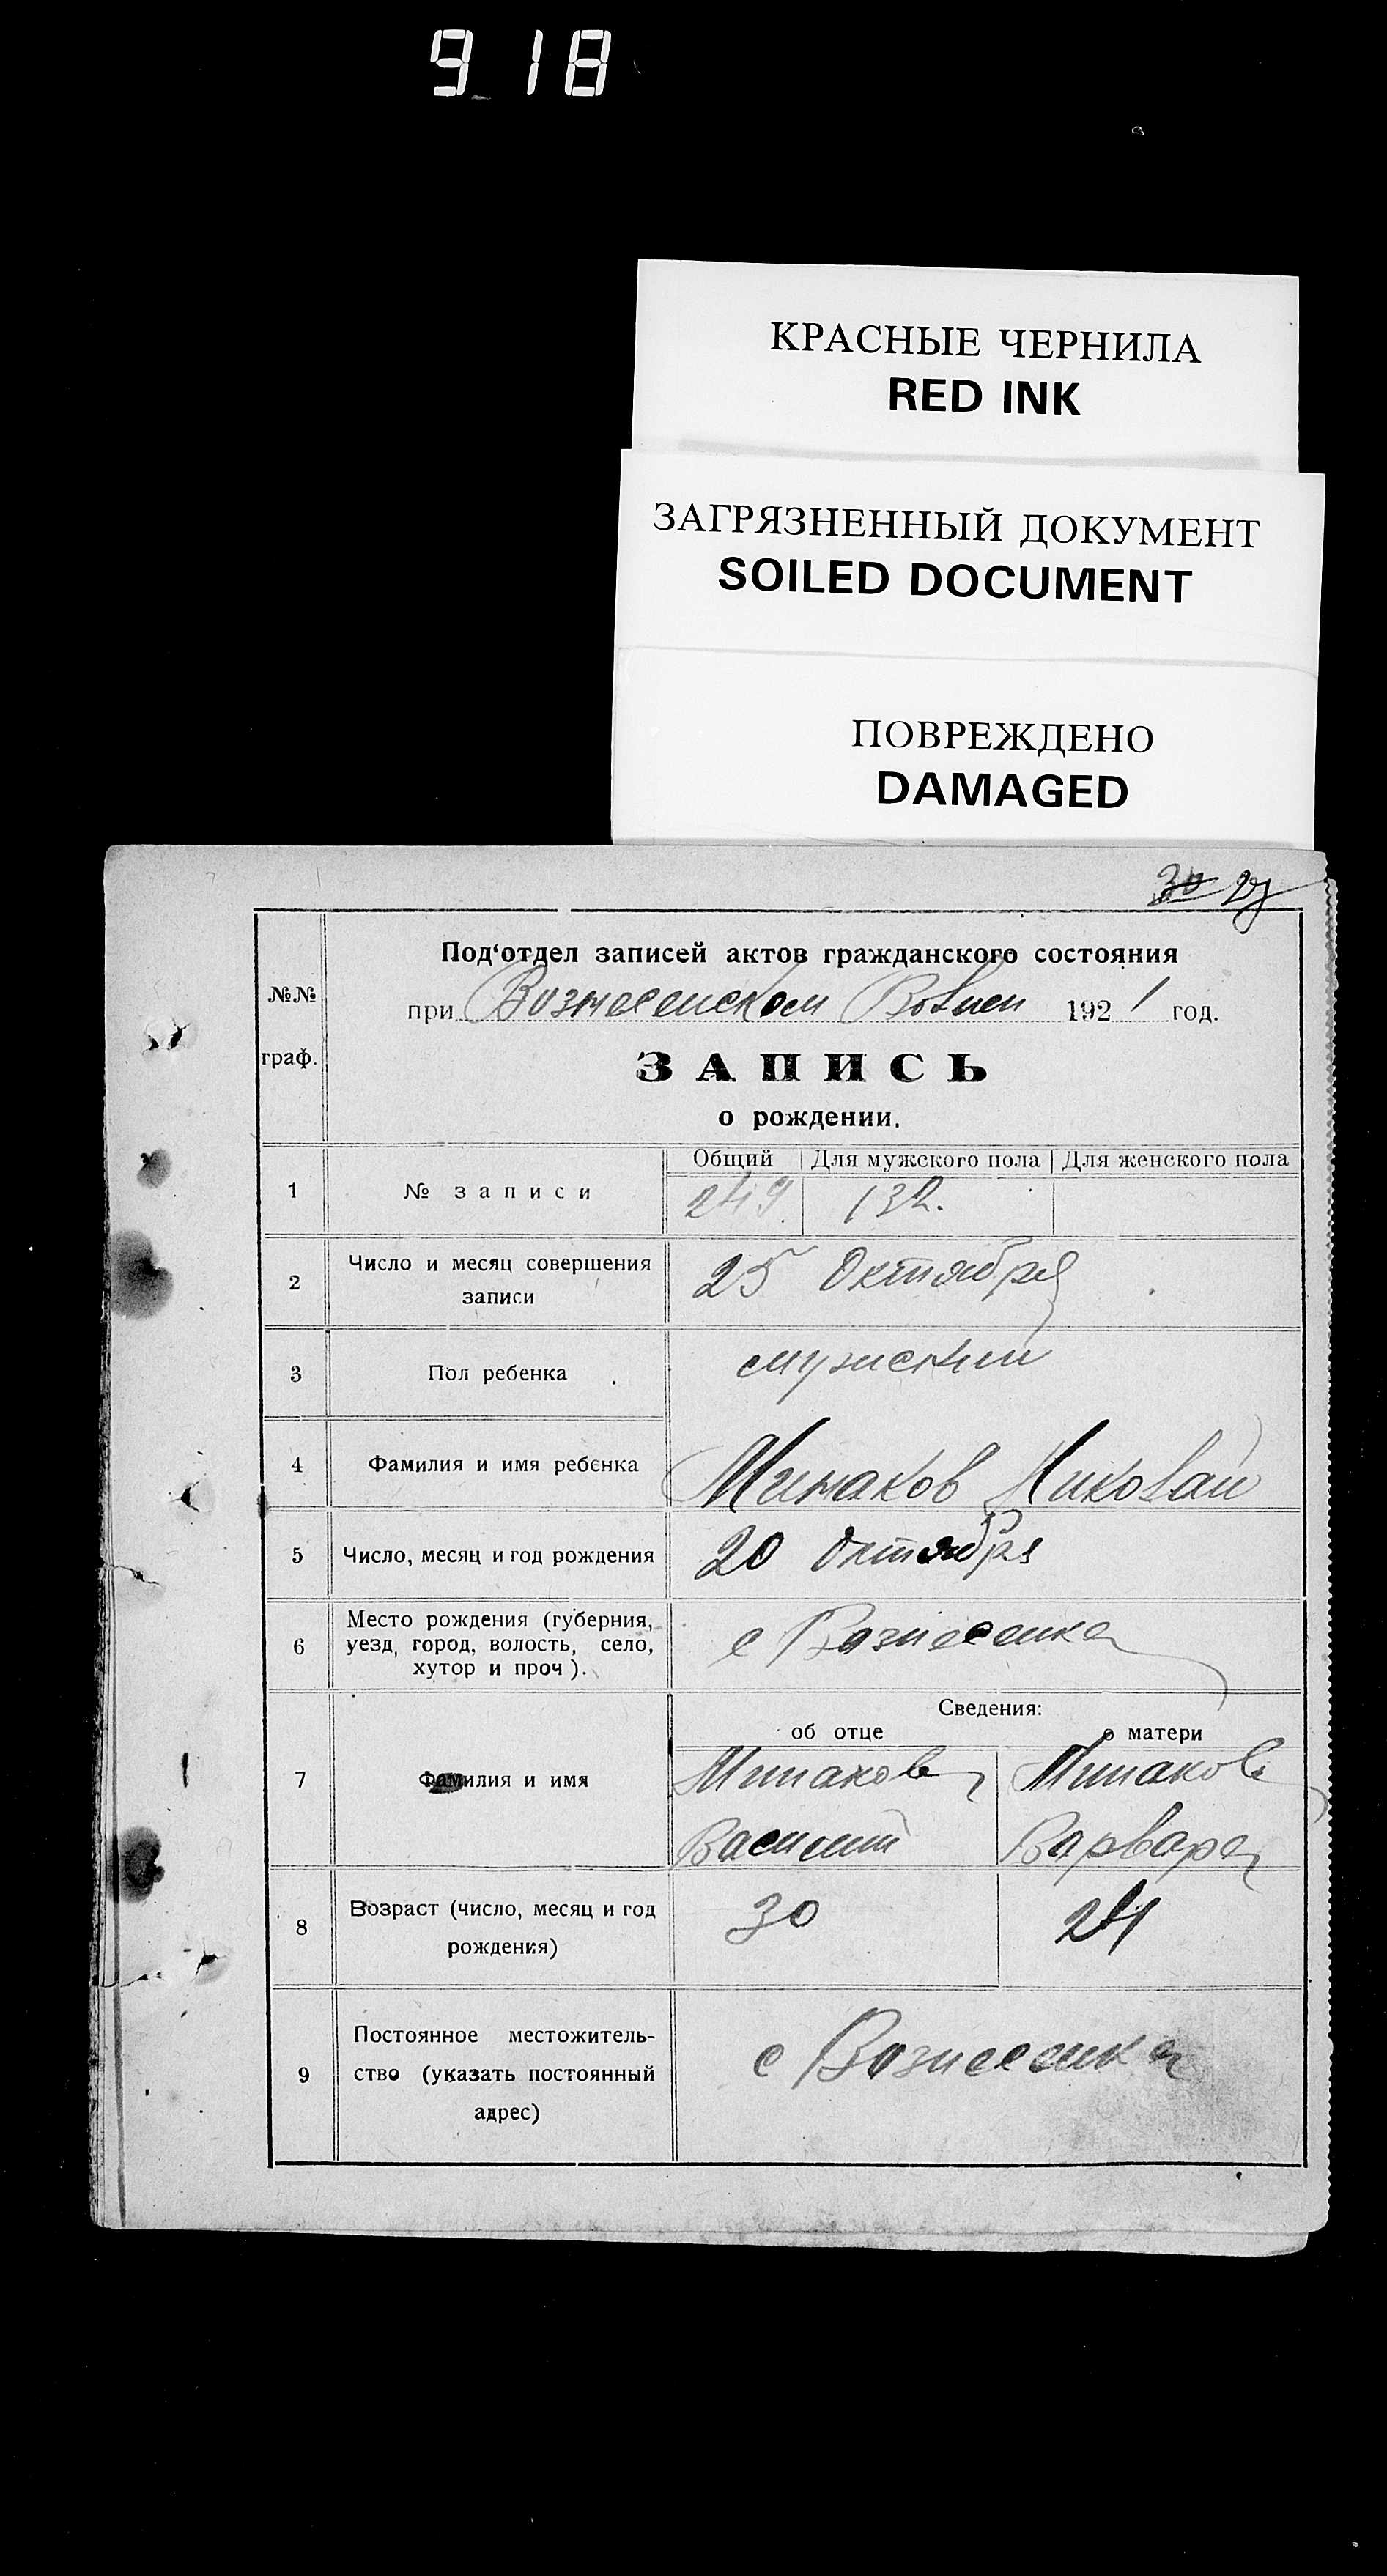 918
КРАСНЫЕ ЧЕРНИЛА
RED INK
ЗАГРЯЗНЕННЫЙ ДОКУМЕНТ
SOILED DOCUMENT
ПОВРЕЖДЕНО
DAMAGED
30
Под‘отдел записей актов гражданского состояния
№№ граф.
при Вознесенском Волисп 1921 год.
ЗАПИСЬ
о рождении.
Общий Для мужского пола Для женского пола
1 № записи 249 132.
2 Число и месяц совершения
записи
25 Октября
3 Пол ребенка мужской
4 Фамилия и имя ребенка Минаков Николай
5 Число, месяц и год рождения 20 Октября
6 Место рождения (губерния,
уезд, город, волость, село,
хутор и проч).
с Вознесенка
Сведения:
об отце о матери
7 Фамилия и имя
Минаков Минакова
Василий Варвара
8 Возраст (число, месяц и год
рождения)
30 24
9 Постоянное местожитель-
ство (указать постоянный
адрес)
с Вознесенка